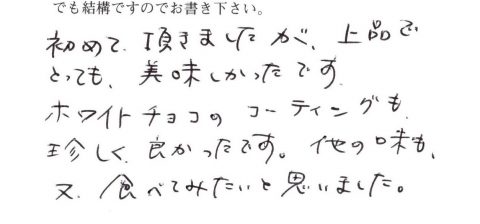 でも結構ですのでお書き下さい。
初めて頂きましたが、上品で
とっても、美味しかったです。
ホワイトチョコのコーティングも、
珍しく、良かったです。他の味も、
又、食べてみたいと思いました。